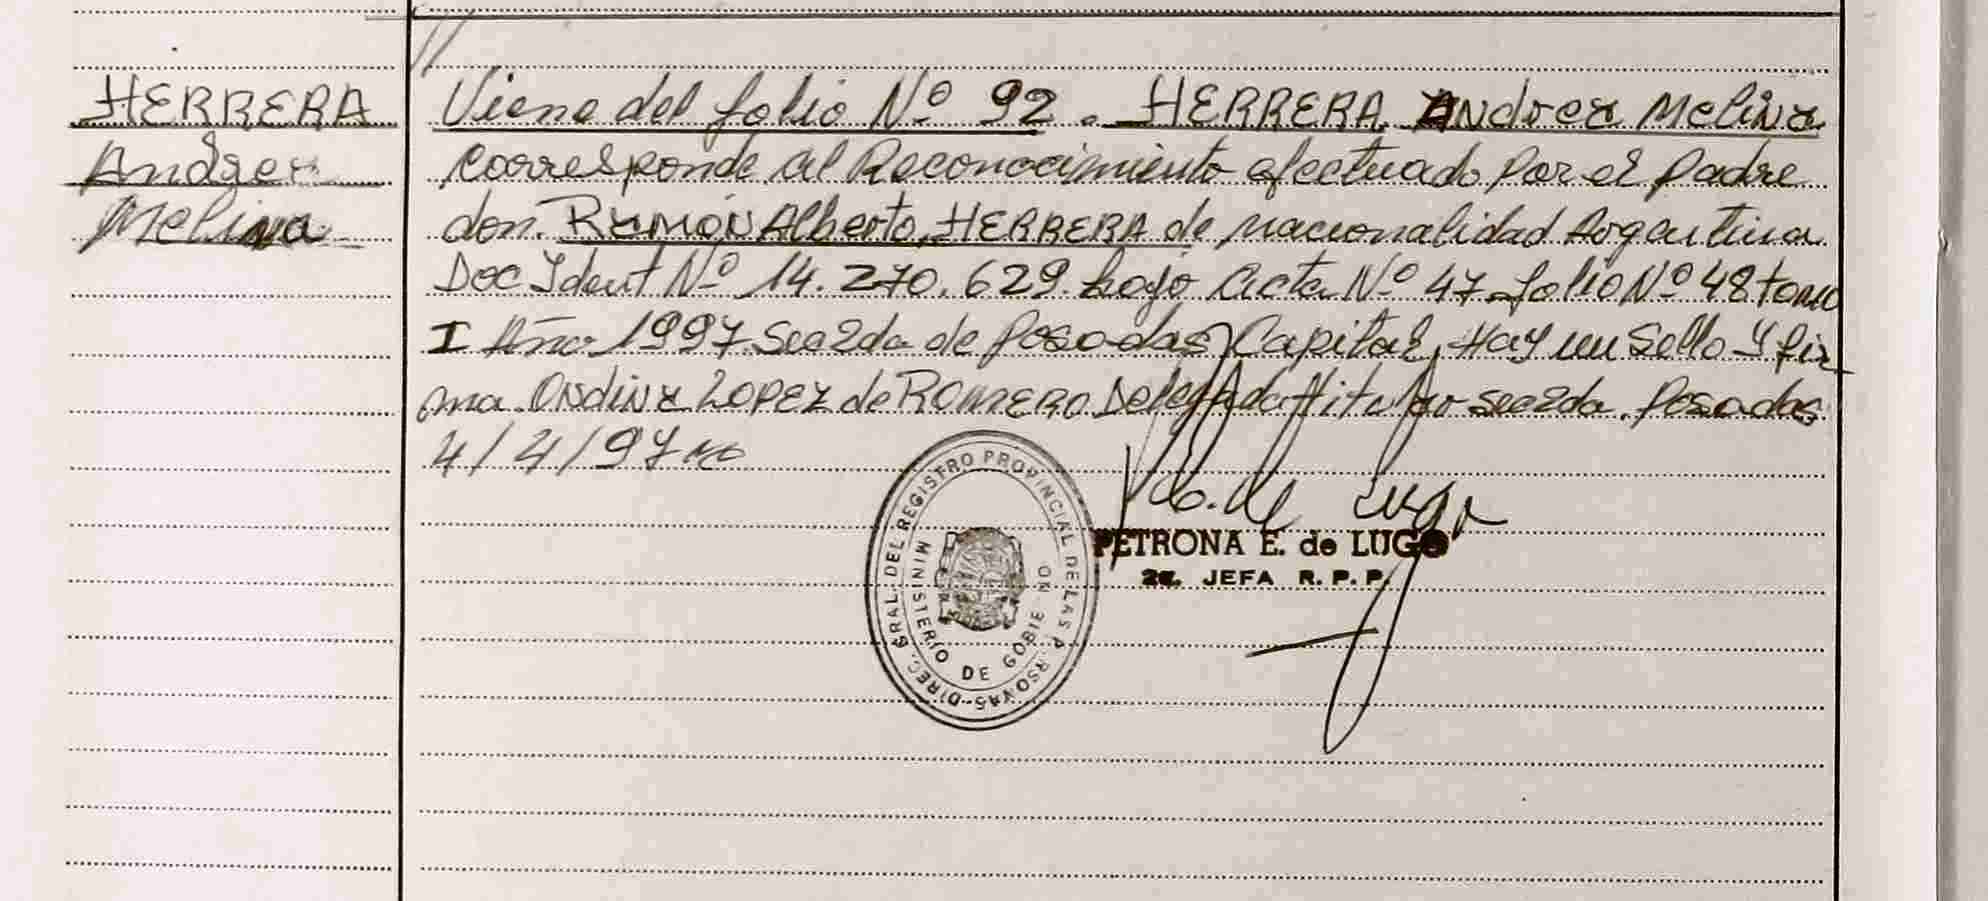 HERRERA
Andrea
Melina
Viene del folio Nº 92. HERRERA, Andrea Melina
corresponde al Reconocimiento efectuado por el padre
don. RAMÓN Alberto, HERRERA de nacionalidad Argentina
Doc Ident Nº 14.270.629. bajo Acta Nº 47 folio Nº 48 tomo
I Año 1997. Sec 2da de Posadas, Capital, Hay un Sello y fir-
ma. Ondina LOPEZ de ROMERO Delegada titular sec 2da. Posadas
4/4/97
de Lugo
PETRONA E. de LUGO
2a. JEFA R.P.P.
DIREC. GRAL. DEL REGISTRO PROVINCIAL DE LAS P RSONAS-
MINISTERIO DE GOBIE NO